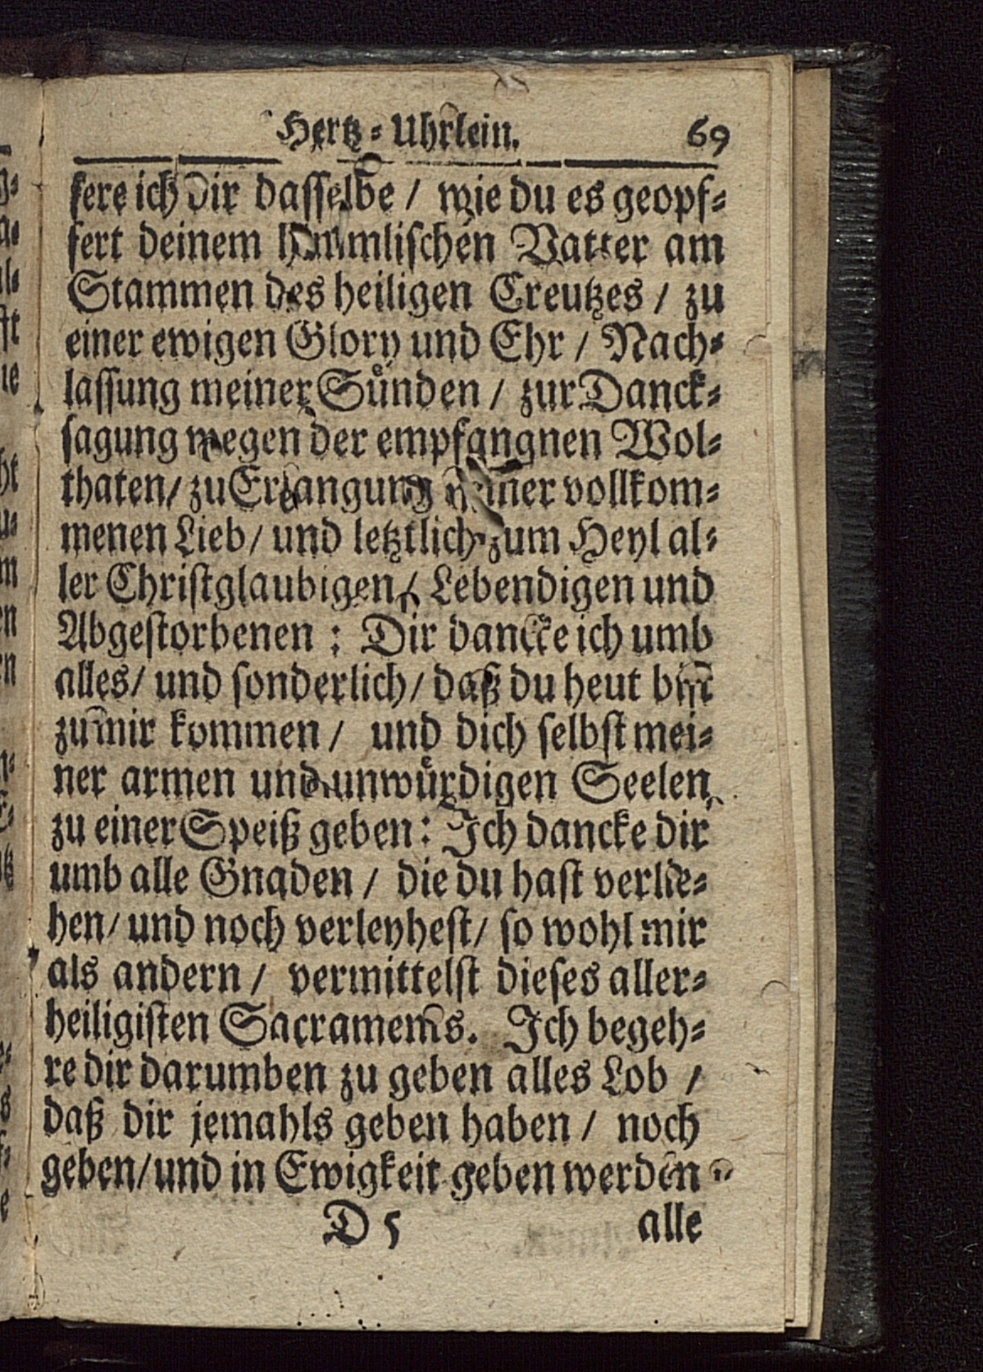 Hertz-Uhrlein. 69
fere ich dir dasselbe / wie du es geopf-
fert deinem himmlischen Vatter am
Stammen des heiligen Creutzes / zu
einer ewigen Glory und Ehr / Nach-
lassung meiner Sünden / zur Danck-
sagung wegen der empfangnen Wol-
thaten / zu Erlangung vollkom-
menen Lieb / und letztlich zum Heyl al-
ler Christglaubigen / Lebendigen und
Abgestorbenen : Dir dancke ich umb
alles / und sonderlich / daß du heut bist
zu mir kommen / und dich selbst mei-
ner armen und unwürdigen Seelen
zu einer Speiß geben : Ich dancke dir
umb alle Gnaden / die du hast verlie-
hen / und noch verleyhest / so wohl mir
als andern / vermittelst dieses aller-
heiligisten Sacraments. Ich begeh-
re dir darumben zu geben alles Lob /
daß dir jemahls geben haben / noch
geben / und in Ewigkeit geben werden
D 5 alle